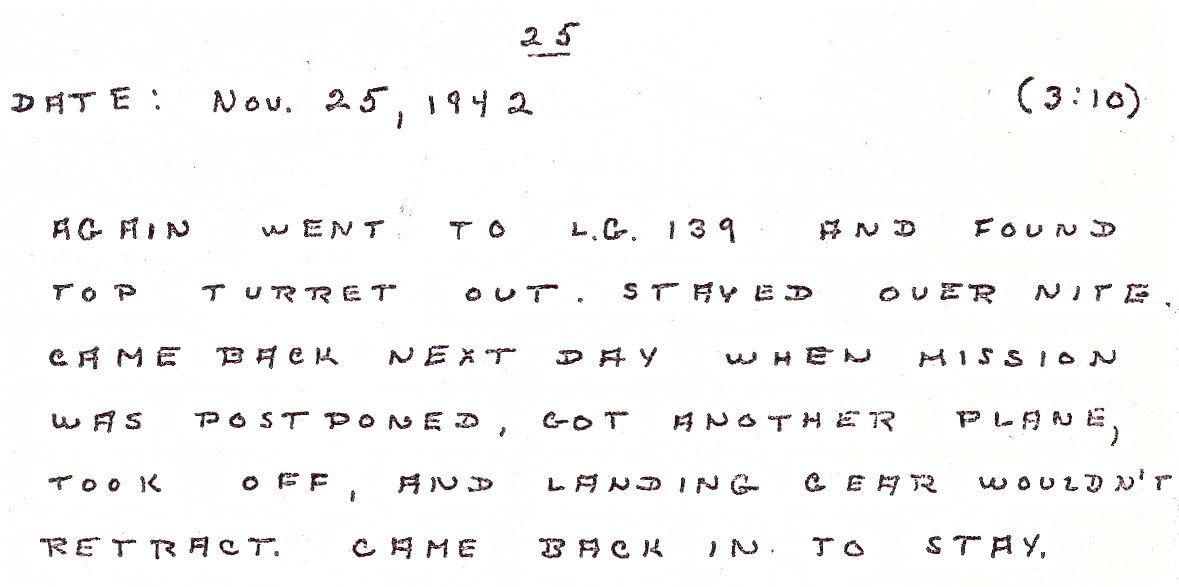 25
DATE: NOV. 25, 1942 (3:10)
AGAIN WENT TO L.G. 139 AND FOUND
TOP TURRET OUT. STAYED OVER NITE.
CAME BACK NEXT DAY WHEN MISSION
WAS POSTPONED, GOT ANOTHER PLANE,
TOOK OFF, AND LANDING GEAR WOULDN'T
RETRACT. CAME BACK IN TO STAY.